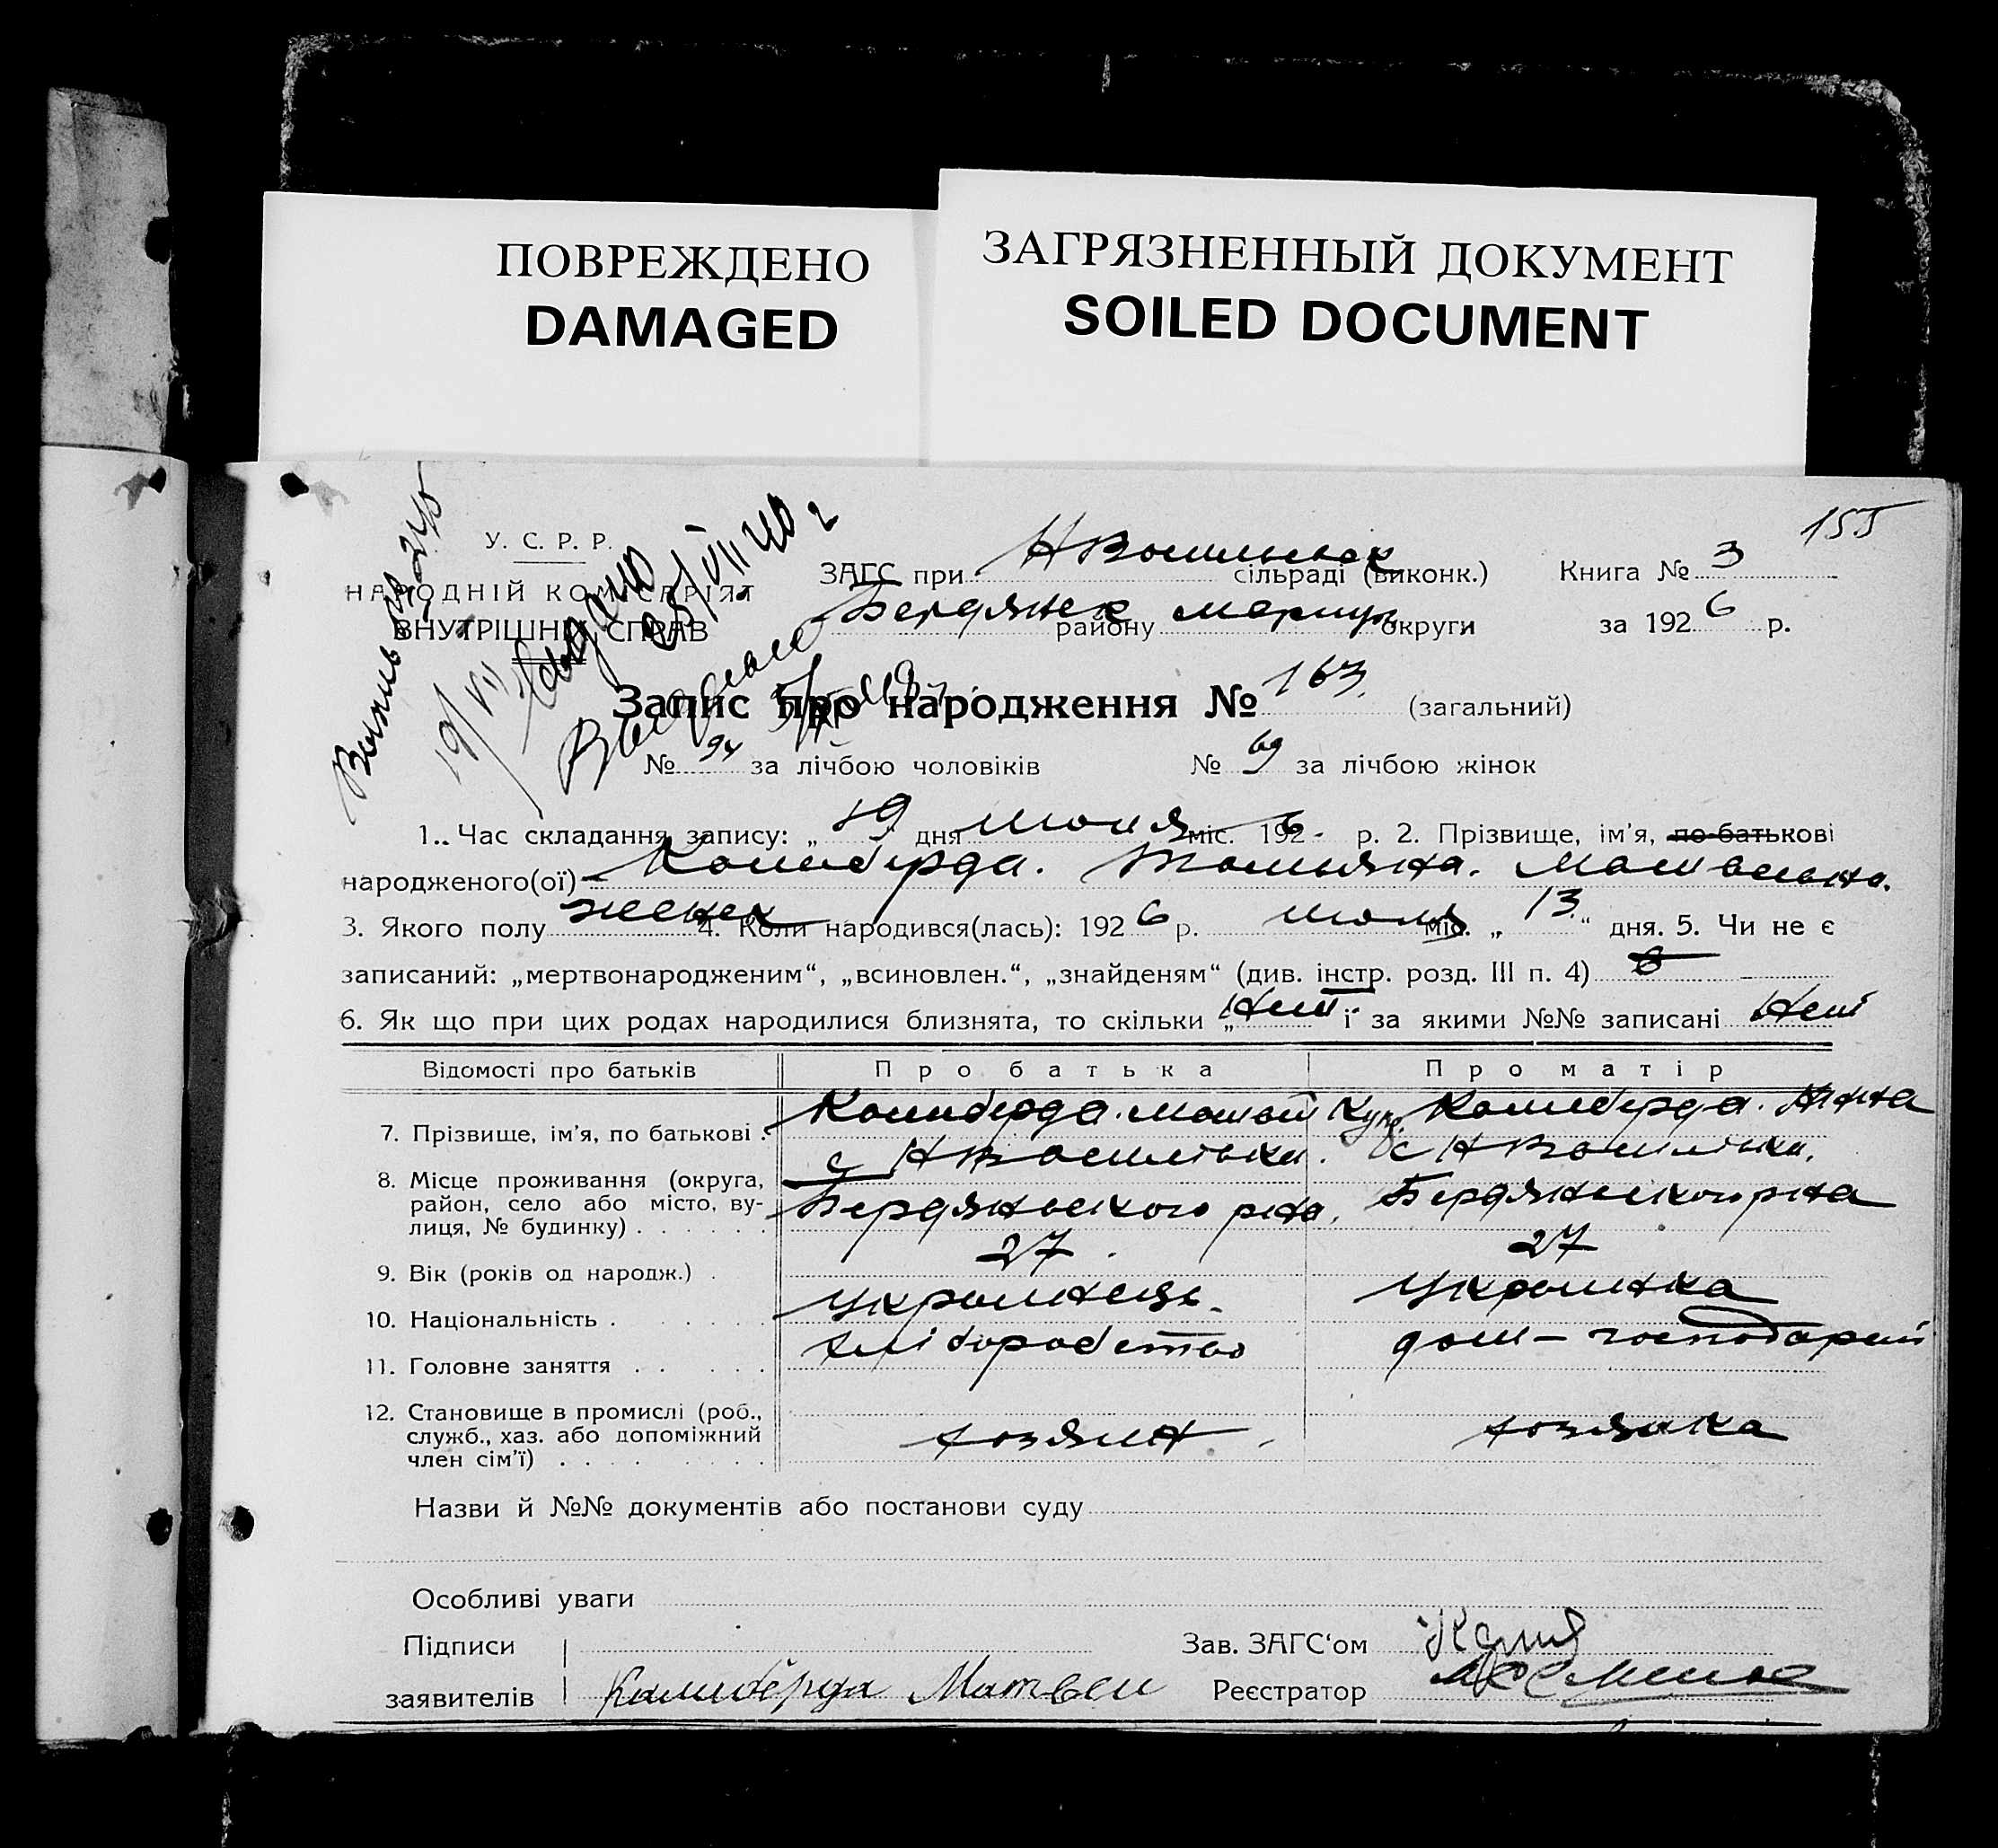 ПОВРЕЖДЕНО
DAMAGED
ЗАГРЯЗНЕННЫЙ ДОКУМЕНТ
SOILED DOCUMENT
155
У. С. Р. Р.
НАРОДНІЙ КОМІСАРІЯТ
ВНУТРІШНІХ СПРАВ
ЗАГС при сільраді (виконк.) Книга № 3
Бердянск району Мариуп округи за 1926 р.
Выдано
25/VIII 40 г
19/VII
Запис про народження № 163. (загальний)
№ 94 за лічбою чоловіків № 69 за лічбою жінок
1. Час складання запису: „19" дня июля міс. 1926 р. 2. Прізвище, ім'я, по-батькові
народженого(ої) Калиберда. Татьяна. Матвеевна.
3. Якого полу женск 4. Коли народився(лась): 1926 р. июля міс. „13." дня. 5. Чи не є
записаний: „мертвонародженим", „всиновлен.", „знайденям" (див. інстр. розд. III п. 4)
6. Як що при цих родах народилися близнята, то скільки „Нет і за якими №№ записані Нет
Відомості про батьків Про батька Про матір
7. Прізвище, ім'я, по батькові Калиберда. Матвей Калиберда. Анна
с НВасилівка. с НВасилівка.
8. Місце проживання (округа, район, село або місто, вулиця, № будинку) Бердянського р-на. Бердянського р-на
9. Вік (років од народж.) 27 27
10. Національність Українець. Українка
11. Головне заняття хліборобство дом-господарки
12. Становище в промислі (роб., служб., хаз. або допоміжний член сім'ї) хозяин хозяйка
Назви й №№ документів або постанови суду
Особливі уваги
Підписи заявителів Калиберда Матвей
Зав. ЗАГС'ом
Реєстратор